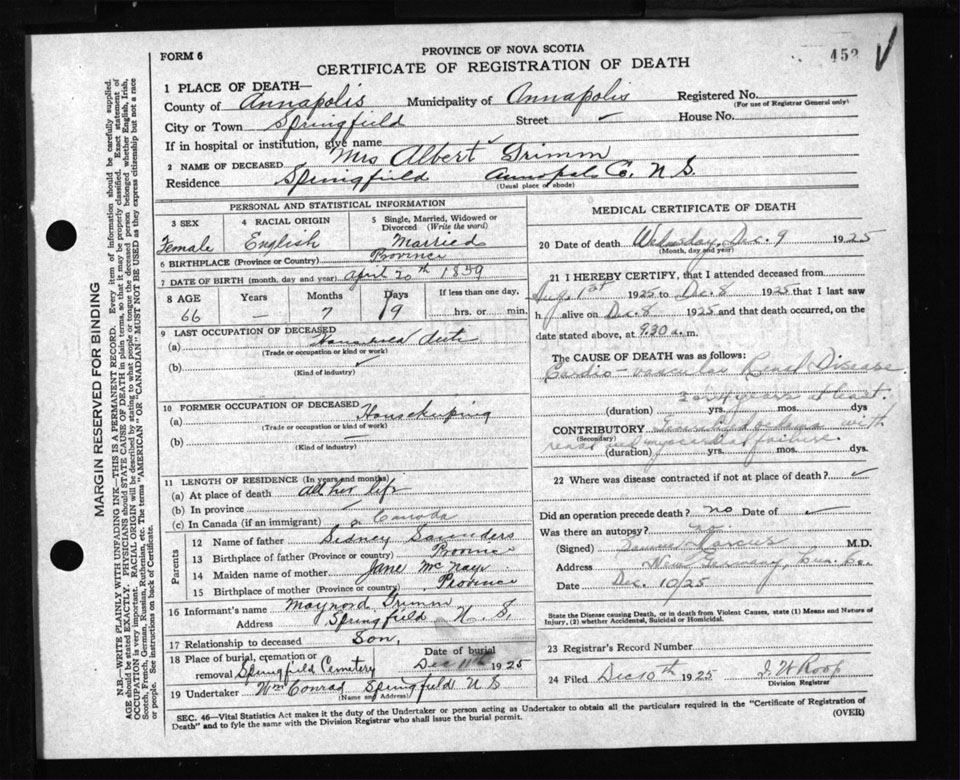 FORM 6
PROVINCE OF NOVA SCOTIA
CERTIFICATE OF REGISTRATION OF DEATH
452
1 PLACE OF DEATH—
County of Annapolis Municipality of Annapolis Registered No.
(For use of Registrar General only)
City or Town Springfield Street — House No.
If in hospital or institution, give name
2 NAME OF DECEASED Mrs Albert Grimm
Residence Springfield Annapolis Co. N.S.
(Usual place of abode)
PERSONAL AND STATISTICAL INFORMATION
3 SEX
Female
4 RACIAL ORIGIN
English
5 Single, Married, Widowed or Divorced (Write the word)
Married
6 BIRTHPLACE (Province or Country) Province
7 DATE OF BIRTH (month, day and year) April 20th 1859
8 AGE Years Months Days If less than one day,
66 — 7 19 ....hrs. or .... min.
9 LAST OCCUPATION OF DECEASED
(a) Household duti
(Trade or occupation or kind or work)
(b)
(Kind of industry)
10 FORMER OCCUPATION OF DECEASED
(a) Housekeeping
(Trade or occupation or kind of work)
(b) —
(Kind of industry)
11 LENGTH OF RESIDENCE (In years and months)
(a) At place of death All her life
(b) In province
(c) In Canada (if an immigrant) Canada
Parents
12 Name of father Sidney Saunders
13 Birthplace of father (Province or country) Province
14 Maiden name of mother Jane McNayr
15 Birthplace of mother (Province or country) Province
16 Informant's name Maynord Grimm
Address Springfield N.S.
17 Relationship to deceased Son.
18 Place of burial, cremation or removal Springfield Cemetery
Date of burial Dec 11th 1925
19 Undertaker Wm Conrad Springfield N S
(Name and Address)
MEDICAL CERTIFICATE OF DEATH
20 Date of death Wednesday, Dec. 9 1925
(Month, day and year)
21 I HEREBY CERTIFY, that I attended deceased from
1st 1925 to Dec. 8 1925 that I last saw
h alive on Dec. 8 1925 and that death occurred, on the
date stated above, at 9.30 a. m.
The CAUSE OF DEATH was as follows:
Cardio-vascular Renal Disease.
3 or 4 years at least.
(duration) yrs. mos. dys
CONTRIBUTORY with
(Secondary)
renal and myocardial failure.
(duration) yrs. mos. dys.
22 Where was disease contracted if not at place of death?
Did an operation precede death? no Date of
Was there an autopsy? no
(Signed) Marcus M.D.
Address New Germany, Lun. Co.
Date Dec. 10/25
State the Disease causing Death, or in death from Violent Causes, state (1) Means and Nature of Injury, (2) whether Accidental, Suicidal or Homicidal.
23 Registrar's Record Number
24 Filed Dec 10th 1925 J. W Roop
Division Registrar
SEC. 46—Vital Statistics Act makes it the duty of the Undertaker or person acting as Undertaker to obtain all the particulars required in the "Certificate of Registration of
Death" and to fyle the same with the Division Registrar who shall issue the burial permit.
(OVER)
MARGIN RESERVED FOR BINDING
N.B.—WRITE PLAINLY WITH UNFADING INK—THIS IS A PERMANENT RECORD. Every item of information should be carefully supplied.
AGE should be stated EXACTLY. PHYSICIANS should STATE CAUSE OF DEATH in plain terms, so that it may be properly classified. Exact statement of
OCCUPATION is very important. RACIAL ORIGIN will be described by stating to what people or tongue the deceased person belonged whether English, Irish,
Scotch, French, German, Russian, Ruthenian, etc. The terms "AMERICAN" OR "CANADIAN" MUST NOT BE USED as they express citizenship but not a race
or people. See instructions on back of Certificate.